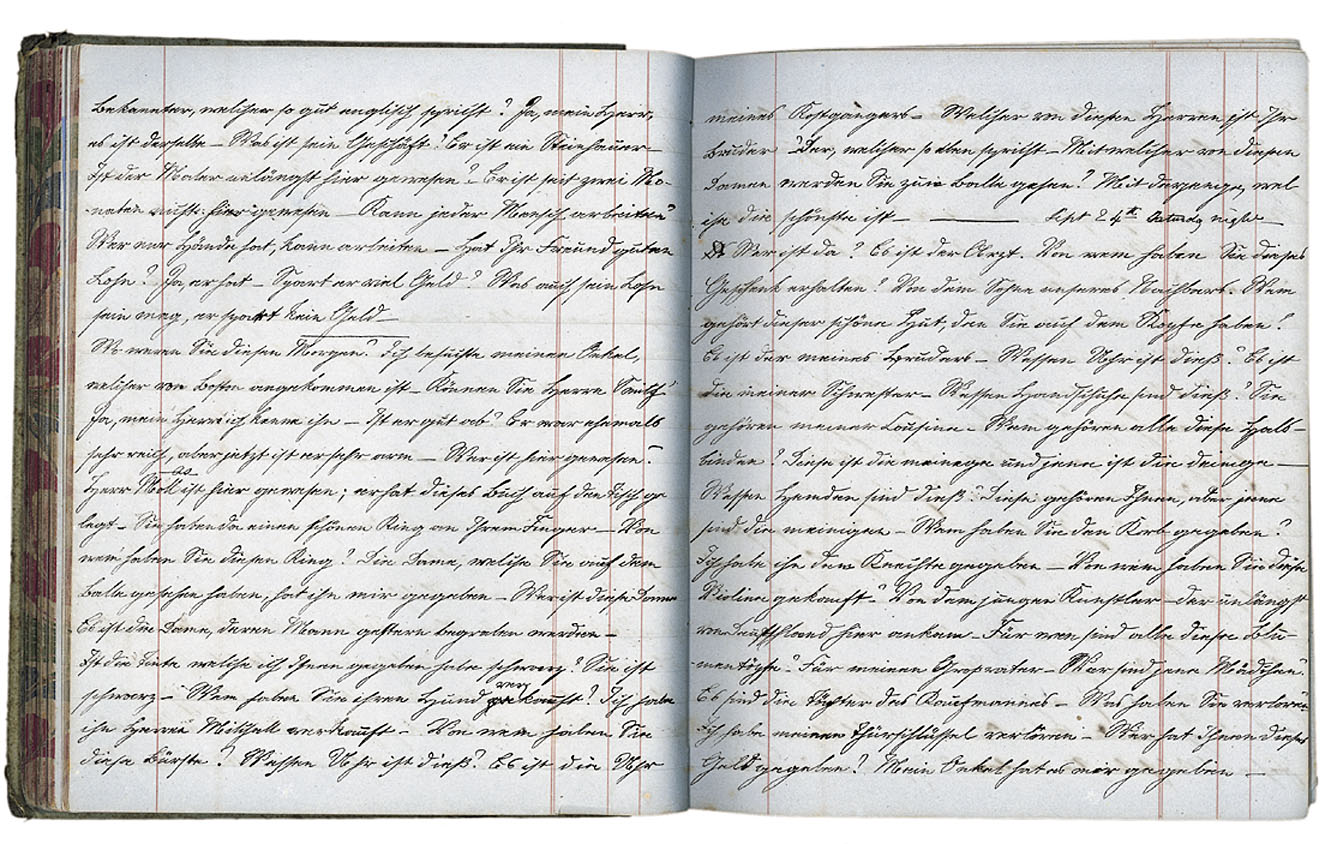 Bekannter, welcher so gut englisch spricht? Ja, mein Herr,
es ist derselbe – Was ist sein Geschäft? Er ist ein Steinhauer –
Ist der Maler unlängst hier gewesen? Er ist seit zwei Mo-
naten nicht hier gewesen – Kann jeder Mensch arbeiten?
Wer nur Hände hat, kann arbeiten – Hat Ihr Freund guten
Lohn? Ja, er hat – Spart er viel Geld? Was auch sein Lohn
sein mag, er spart kein Geld –
Wo waren Sie diesen Morgen? Ich besuchte meinen Onkel,
welcher von Boston angekommen ist – Können Sie Herrn Smith?
Ja, mein Herr ich kenne ihn – Ist er gut ab? Er war ehemals
sehr reich, aber jetzt ist er sehr arm – Wer ist hier gewesen?
Herr Moll ist hier gewesen; er hat dieses Buch auf den Tisch ge
legt – Sie haben da einen schönen Ring an Ihrem Finger – Von
wem haben Sie diesen Ring? Die Dame, welche Sie auf dem
Balle gesehen haben, hat ihn mir gegeben – Wer ist diese Dame
Es ist die Dame, deren Mann gestern begraben wurde –
Ist die Tinte welche ich Ihnen gegeben habe schwarz? Sie ist
schwarz – Wem haben Sie ihren Hund verkauft? Ich habe
ihn Herrn Mitchell verkauft – Von wem haben Sie
diese Bürste? Wessen Uhr ist dieß? Es ist die Uhr
meines Kostgängers – Welcher von diesen Herren ist Ihr
Bruder? Der, welcher so eben spricht – Mit welcher von diesen
Damen werden Sie zum Balle gehen? Mit derjenige, wel
che die schönste ist – Sept 24th Saturday night –
Wer ist da? Es ist der Arzt. Von wem haben Sie dieses
Geschenk erhalten? Von dem Sohne unseres Nachbars. Wem
gehört dieser schöne Hut, den Sie auf dem Kopfe haben?
Es ist der meines Bruders – Wessen Uhr ist dieß? Es ist
die meiner Schwester – Wessen Handschuhe sind dieß? Sie
gehören meiner Cousine – Wem gehören alle diese Hals-
binden? Diese ist die meinige und jene ist die deinige –
Wessen Hemden sind dieß? Diese gehören Ihnen, aber jene
sind die meinigen – Wem haben Sie den Korb gegeben?
Ich habe ihn dem Knechte gegeben – Von wem haben Sie diese
Violine gekauft? Von dem jungen Künstler – der unlängst
von Deutschland hier ankam – Für wen sind alle diese Blu-
mentöpfe? Für meinen Großvater – Wer sind jene Mädchen?
Es sind die Töchter des Kaufmannes – Was haben Sie verloren
Ich habe meinen Thürschlüssel verloren – Wer hat Ihnen dieses
Geld gegeben? Mein Onkel hat es mir gegeben –